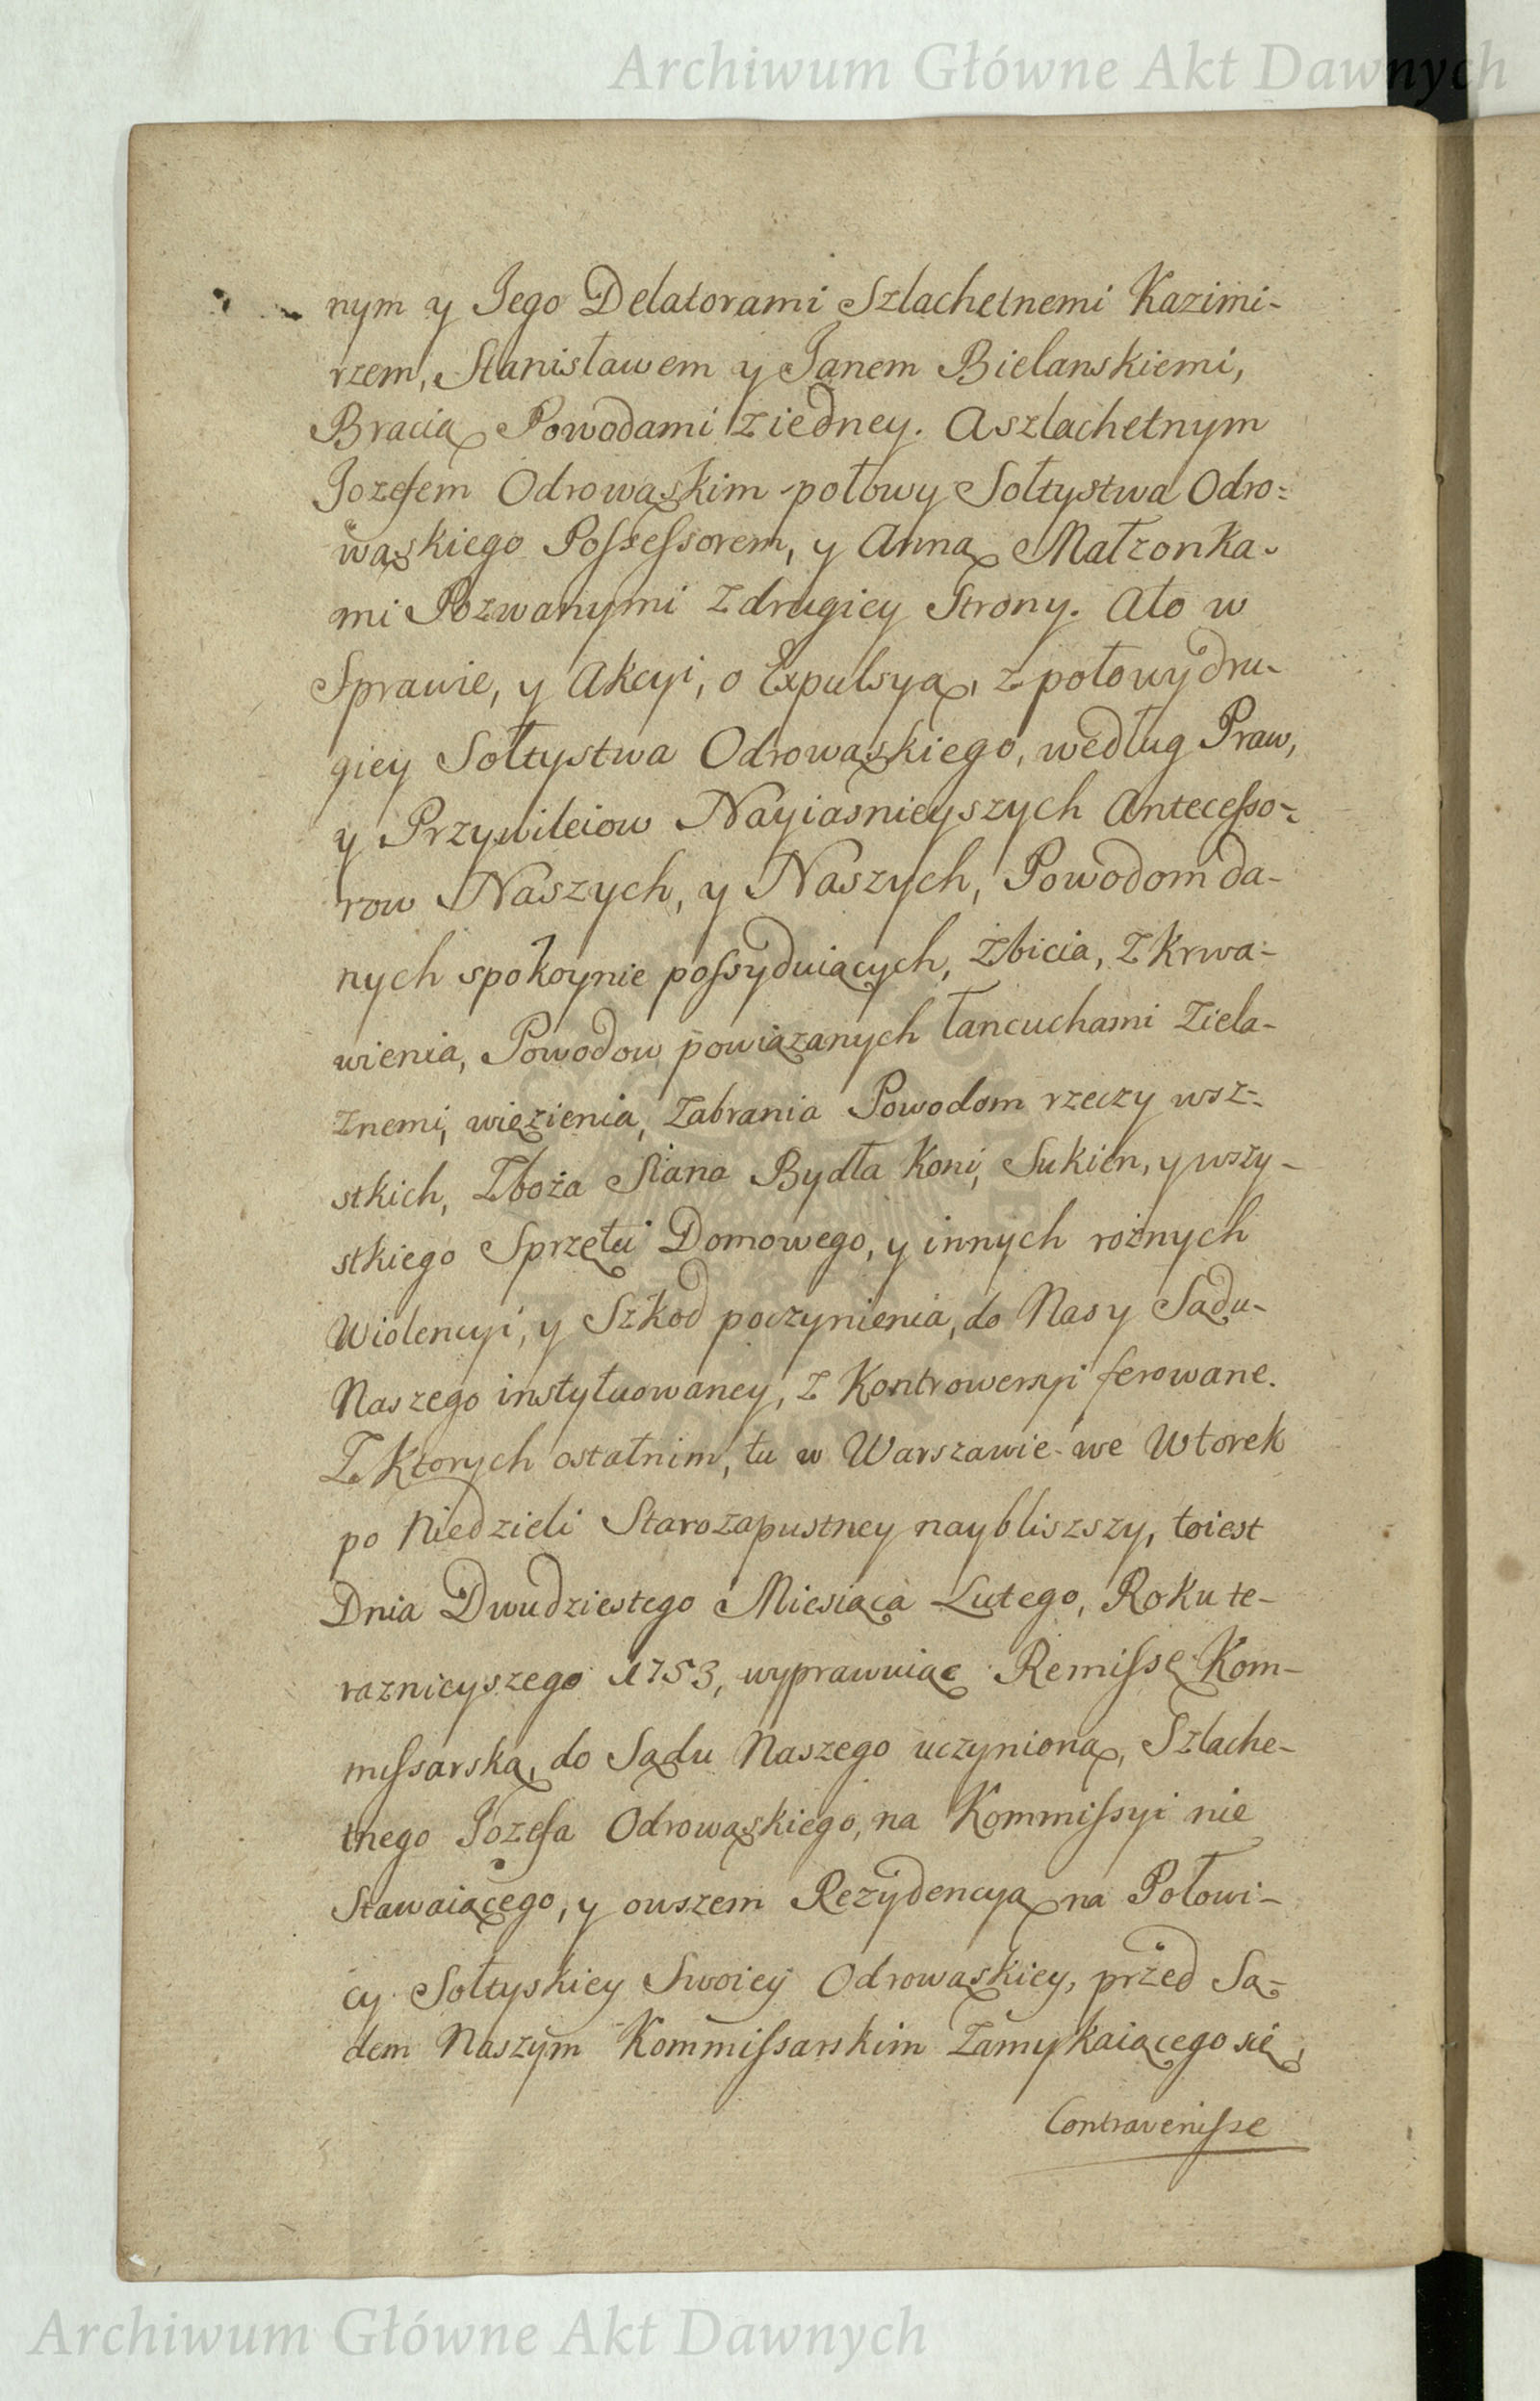 Archiwum Główne Akt Dawnych
nym y Jego Delatorami Szlachetnemi Kazimi-
rzem, Stanisławem y Janem Bielanskiemi,
Bracią Powodami z iedney. A szlachetnym
Jozefem Odrowąskim połowy Sołtystwa Odro=
wąskiego Possessorem, y Anną Małzonka-
mi Pozwanymi z drugiey Strony. Ato w
Sprawie, y Akcyi, o Expulsyą, z połowy dru-
giey Sołtystwa Odrowąskiego, według Praw,
y Przywileiow Nayiasnieyszych Antecesso-
row Naszych, y Naszych, Powodom da-
nych spokoynie possyduiących, Zbicia, Zkrwa-
wienia, Powodow powiązanych łancuchami Ziela-
znemi, więzienia, Zabrania Powodom rzeczy wsz-
stkich, Zboża Siana Bydła Koni, Sukien, y wszy-
stkiego Sprzętu Domowego, y innych rożnych
Wiolencyi, y Szkod poczynienia, do Nas y Sądu-
Naszego instytuowaney, z Kontrowersyi ferowane.
Z Ktorych ostatnim, tu w Warszawie we Wtorek
po Niedzieli Starozapustney naybliszszy, toiest
Dnia Dwudziestego Miesiąca Lutego, Roku te-
raznieyszego 1753, wyprawuiąc Remissę Kom-
missarską, do Sądu Naszego uczynioną, Szlache-
tnego Jozefa Odrowąskiego, na Kommissyi nie
Stawaiącego, y owszem Rezydencyą na Połowi-
cy Sołtyskiey Swoiey Odrowąskiey, przed Są-
dem Naszym Kommissarskim Zamykaiącego się,
Contravenisse
Archiwum Główne Akt Dawnych